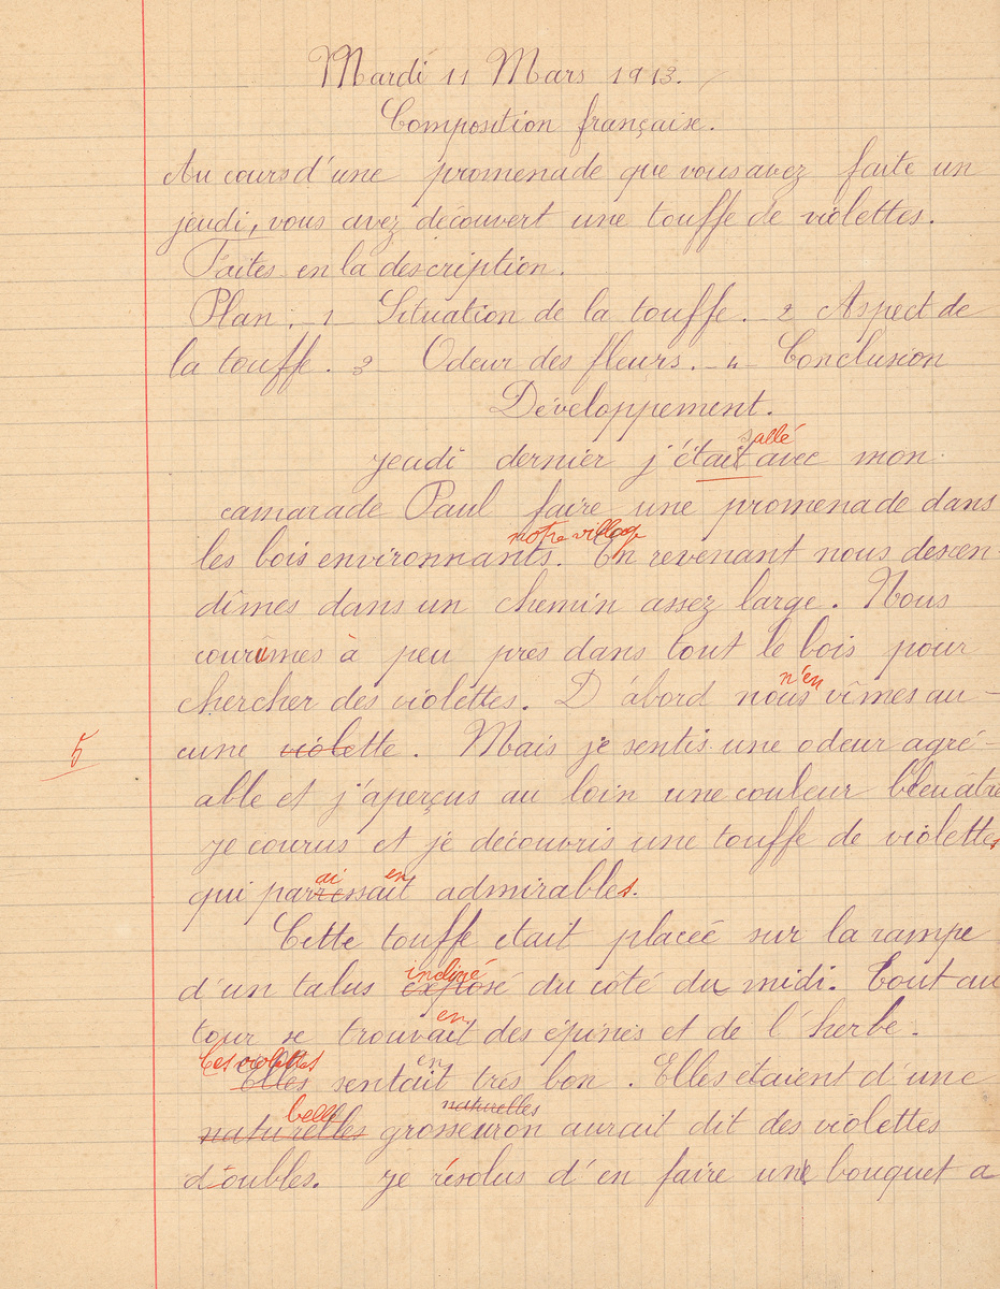 Mardi 11 Mars 1913.
Composition française.
Au cours d'une promenade que vous avez faite un
jeudi, vous avez découvert une touffe de violettes.
Faites en la description.
Plan. 1 _ Situation de la touffe. _ 2 Aspect de
la touffe. 3 _ Odeur des fleurs. _ 4 _ Conclusion
Développement.
allé
jeudi dernier j'était avec mon
camarade Paul faire une promenade dans
notre village
les bois environnants. En revenant nous descen
dîmes dans un chemin assez large. Nous
courûmes à peu près dans tout le bois pour
n'en
chercher des violettes. D'abord nous vîmes au-
5
cune violette. Mais je sentis une odeur agré-
able et j'aperçus au loin une couleur bleuâtre
je courus et je découvris une touffe de violettes
ai en
qui parressait admirables.
Cette touffe etait placée sur la rampe
incliné
d'un talus exposé du côté du midi. Tout au
en
tour se trouvait des épines et de l'herbe.
Ces violettes en
Elles sentait très bon. Elles etaient d'une
belle naturelles
naturelles grosseur on aurait dit des violettes
doubles. je résolus d'en faire une bouquet a